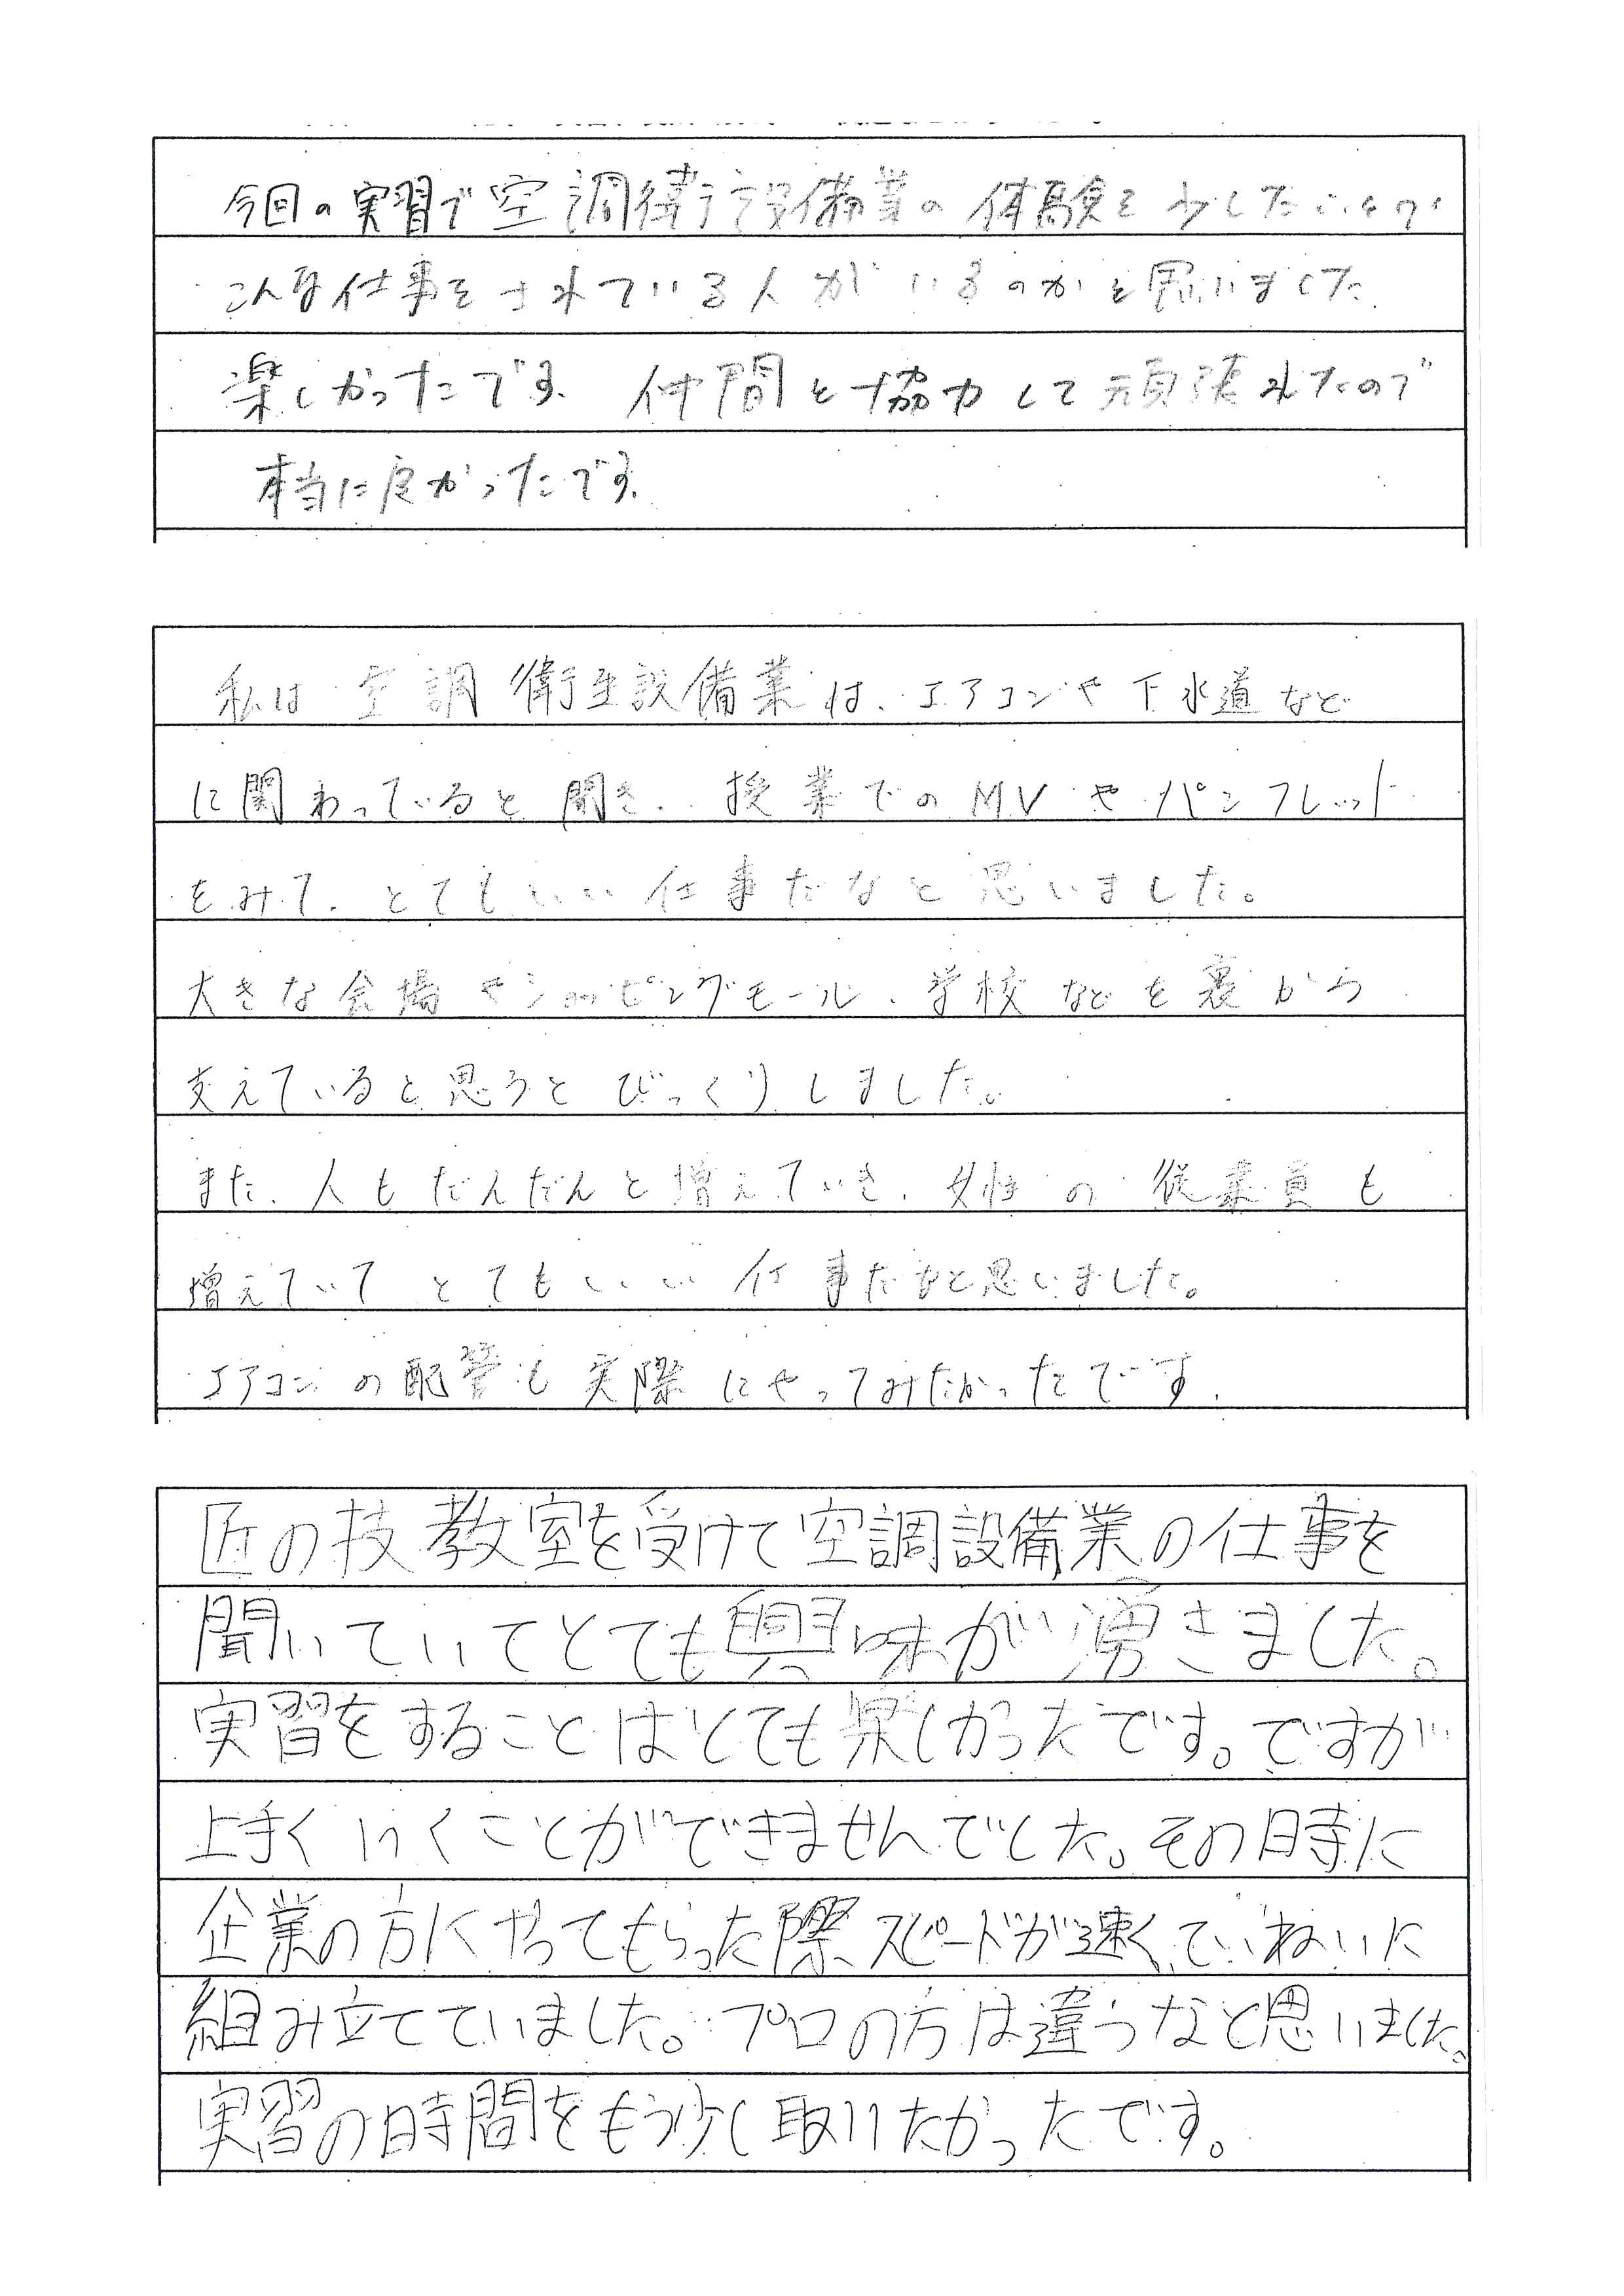 今回の実習で空調衛生設備業の体験を少ししたいとか
こんな仕事をされている人がいるのかと思いました
楽しかったです。仲間と協力して頑張れたので
本当に良かったです。
私は空調衛生設備業は、エアコンや下水道など
に関わっていると聞き、授業でのMVやパンフレット
をみて、とてもいい仕事だなと思いました。
大きな会場やショッピングモール、学校などを裏から
支えていると思うとびっくりしました。
また、人もだんだんと増えていき、女性の従業員も
増えていてとてもいい仕事だなと思いました。
エアコンの配管も実際にやってみたかったです。
匠の技教室を受けて空調設備業の仕事を
聞いていてとても興味が湧きました。
実習をすることはとても楽しかったです。ですが
上手くいくことができませんでした。その時に
企業の方にやってもらった際スピードが速く、ていねいに
組み立てていました。プロの方は違うなと思いました。
実習の時間をもう少し取りたかったです。